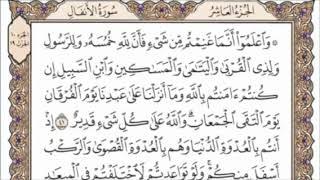 الجزء العاشر
سورة الأنفال
۞ وَٱعْلَمُوٓا۟ أَنَّمَا غَنِمْتُم مِّن شَىْءٍ فَأَنَّ لِلَّهِ خُمُسَهُۥ وَلِلرَّسُولِ
وَلِذِى ٱلْقُرْبَىٰ وَٱلْيَتَٰمَىٰ وَٱلْمَسَٰكِينِ وَٱبْنِ ٱلسَّبِيلِ إِن
كُنتُمْ ءَامَنتُم بِٱللَّهِ وَمَآ أَنزَلْنَا عَلَىٰ عَبْدِنَا يَوْمَ ٱلْفُرْقَانِ
يَوْمَ ٱلْتَقَى ٱلْجَمْعَانِ ۗ وَٱللَّهُ عَلَىٰ كُلِّ شَىْءٍ قَدِيرٌ ٤١ إِذْ
أَنتُم بِٱلْعُدْوَةِ ٱلدُّنْيَا وَهُم بِٱلْعُدْوَةِ ٱلْقُصْوَىٰ وَٱلرَّكْبُ
أَسْفَلَ مِنكُمْ ۚ وَلَوْ تَوَاعَدتُّمْ لَٱخْتَلَفْتُمْ فِى ٱلْمِيعَٰدِ